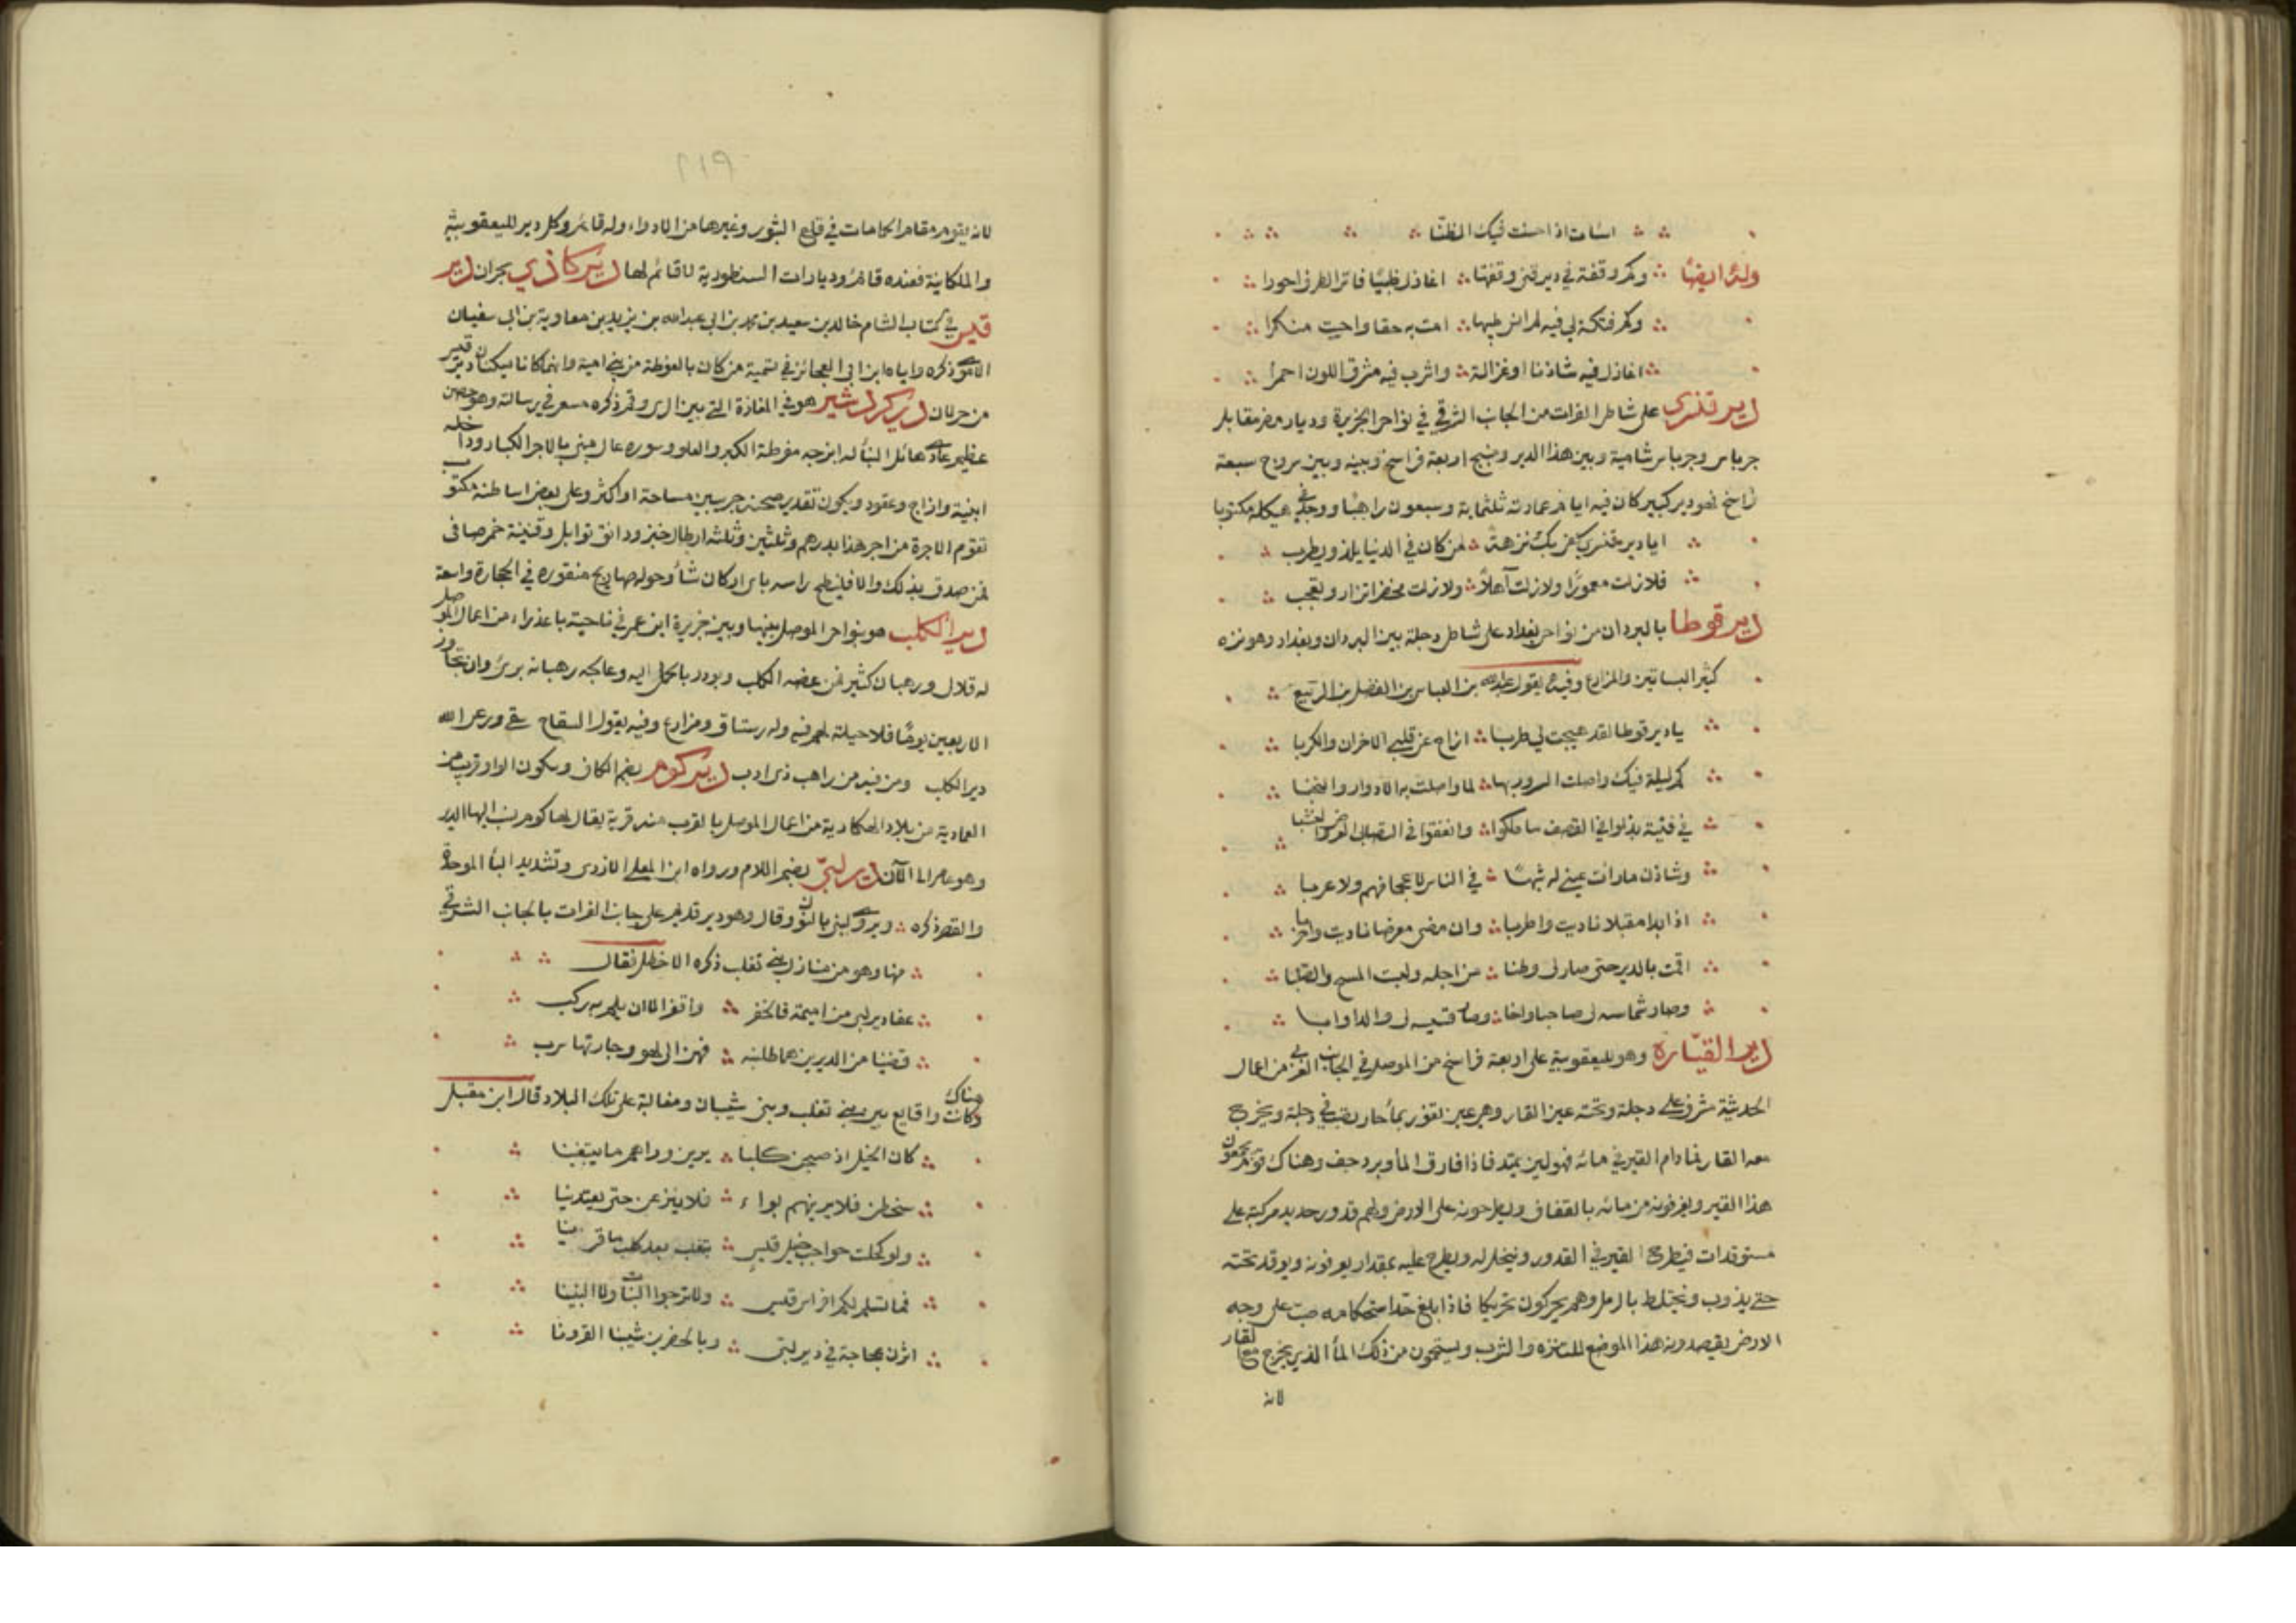 اسأت اذ احسنت فيك الظنا
وله ايضًا وكم وقفة في دير قنى وقفتها اغازل ظبيًا فاتر الطرف احورا
وكم فتكة لي فيه لم انس طيبها امت به حقا واحييت منكرا
اغازل فيه شادنا او غزالة واشرب فيه مشرق اللون احمرا
دير قنسرى على شاطئ الفرات من الجانب الشرقي في نواحي الجزيرة وديار مضر مقابل
جرباس وجرباس شامية وبين هذا الدير ومنبج اربعة فراسخ وبينه وبين سروج سبعة
فراسخ فهو دير كبير كان فيه ايام عمارته ثلثماية وسبعون راهبًا ووجد في هيكله مكتوبا
ايا دير قنسرى كفى بك نزهة لمن كان في الدنيا يلذ ويطرب
فلا زلت معمورًا ولا زلت آهلاً ولا زلت مخضرا تزار وتعجب
دير قوطا بالبردان من نواحي بغداد على شاطئ دجلة بين البردان وبغداد وهو نزه
كثير البساتين والمزارع وفيه يقول عبد الله بن العباس بن الفضل بن الربيع
يا دير قوطا لقد هيجت لي طربا ازاح عن قلبي الاحزان والكربا
كم ليلة فيك واصلت السرور بها لما واصلت به الادوار والنخبا
في فتية بذلوا في القصف ما ملكوا وانفقوا في التصابي العرض والنشبا
وشادن ما رأت عيني له شبهًا في الناس لا عجما فيهم ولا عربا
اذا بدا مقبلا ناديت واطربا وان مضى معرضا ناديت واحربا
اقمت بالدير حتى صار لي وطنا من اجله ولبست المسح والصلبا
وصار شماسه لي صاحبا واخا وصار قسيسه لي والدا وابا
دير القيّارة وهو لليعقوبية على اربعة فراسخ من الموصل في الجانب الغربي من اعمال
الحديثة مشرف على دجلة وتحته عين القار وهي عين تفور بماء حار تصب في دجلة ويخرج
معه القار فما دام القير في مائه فهو لين يمتد فاذا فارق الماء وبرد جف وهناك قوم يجمعون
هذا القير ويغرفونه من مائه بالقفاف ويطرحونه على الارض ولهم قدور حديد مركبة على
مستوقدات فيطرح القير في القدور وينخل له ويطرح عليه بمقدار يعرفونه ويوقد تحته
حتى يذوب ويختلط بالرمل وهم يحركون تحريكا فاذا بلغ حد استحكامه صب على وجه
الارض يقصدونه هذا الموضع للتنزه والشرب ويستحمون من ذلك الماء الذي يخرج معه القار
لانه
٢١٩
لانه يقوم مقام الحامات في قلع البثور وغيرها من الادواء وله قائم وكل دير لليعقوبية
والملكانية فعنده قائم وديارات النسطورية لا قائم لها دير كاذي بحران دير
قيس في كتاب الشام خالد بن سعيد بن محمد بن ابي عبدالله بن يزيد بن معاوية بن ابي سفيان
الاموي ذكره واياه ابن ابي العجائز في تسمية من كان بالغوطة من بني امية وانهما كانا يسكنان دير قيس
من خرلان دير كردشير هو في المفازة التي بين الري وقم ذكره مسعر في رسالته وهو حصن
عظيم عادي هائل البناء له ابرجه مفرطة الكبر والعلو وسوره عال مبني بالاجر الكبار وداخله
ابنية وازاج وعقود ويكون تقدير صحنه جريبين مساحة او اكثر وعلى بعض اساطنه مكتوب
تقوم الاجرة من اجر هذا بدرهم وثلثين وثلثه ارطال خبز ودانق توابل وقنينة خمر صافى
فمن صدق بذلك والا فلينطح راسه باي اركان شاء وحوله صهاريج منقوره في الحجارة واسعة
دير الكلب هو بنواحي الموصل بينها وبين جزيرة ابن عمر في ناحية باعذرا من اعمال الموصل
له قلال ورهبان كثير فمن عضه الكلب وبودر بالحمل اليه وعالجه رهبانه برئ وان تجاوز
الاربعين يومًا فلا حيلة لهم فيه وله رستاق ومزارع وفيه يقول السفاح سقى ورعى الله
دير الكلب ومن فيه من راهب ذى ادب دير كوم بضم الكاف وسكون الواو قريب من
العمادية من بلاد الهكارية من اعمال الموصل بالقرب منه قرية يقال لها كوم نسب اليها الدير
وهو عامر الى الآن دير لبّي بضم اللام ورواه ابن المعلى الازدى وتشديد الباء الموحدة
والقصر ذكره ويروى لبنى بالنون وقال وهو دير قديم على جانب الفرات بالجانب الشرقي
منها وهو من منازل بني تغلب ذكره الاخطل فقال
عفا دير لبى من اميمة فالحضر واقفر الا ان يلم به ركب
قضينا من الديرين هما طلبنه فهن الى لهو وجارتها سرب
وكانت هناك وقايع بين بني تغلب وبنى شيبان ومغالبة على تلك البلاد قال ابن مقبل
كان الخيل اذ صبحن كلبا يرين وراهم ما يبتغينا
سخطن فلا يريهم بواء فلا ينزعن حتى يعتدينا
ولو كحلت حواجب خيل قيس بتغلب بعد كلب ما قرينا
فما تسلم لكم افراس قيس ولا ترجوا البنات ولا البنينا
اثرن عجاجة في دير لبى وبالحضرين شيبنا القرونا